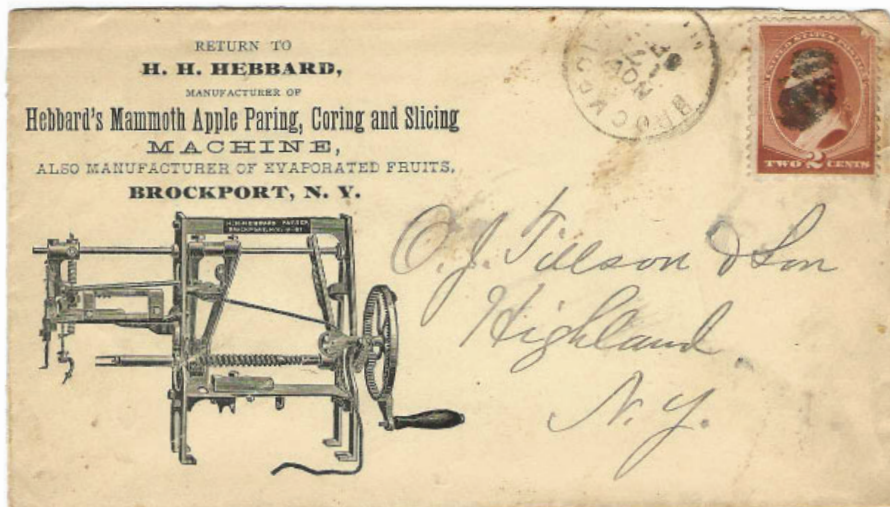 RETURN TO
H. H. HEBBARD,
MANUFACTURER OF
Hebbard's Mammoth Apple Paring, Coring and Slicing
MACHINE,
ALSO MANUFACTURER OF EVAPORATED FRUITS,
BROCKPORT, N. Y.
NOV
17
UNITED STATES POSTAGE
TWO 2 CENTS
O. J. Tillson & Son
Highland
N. Y.